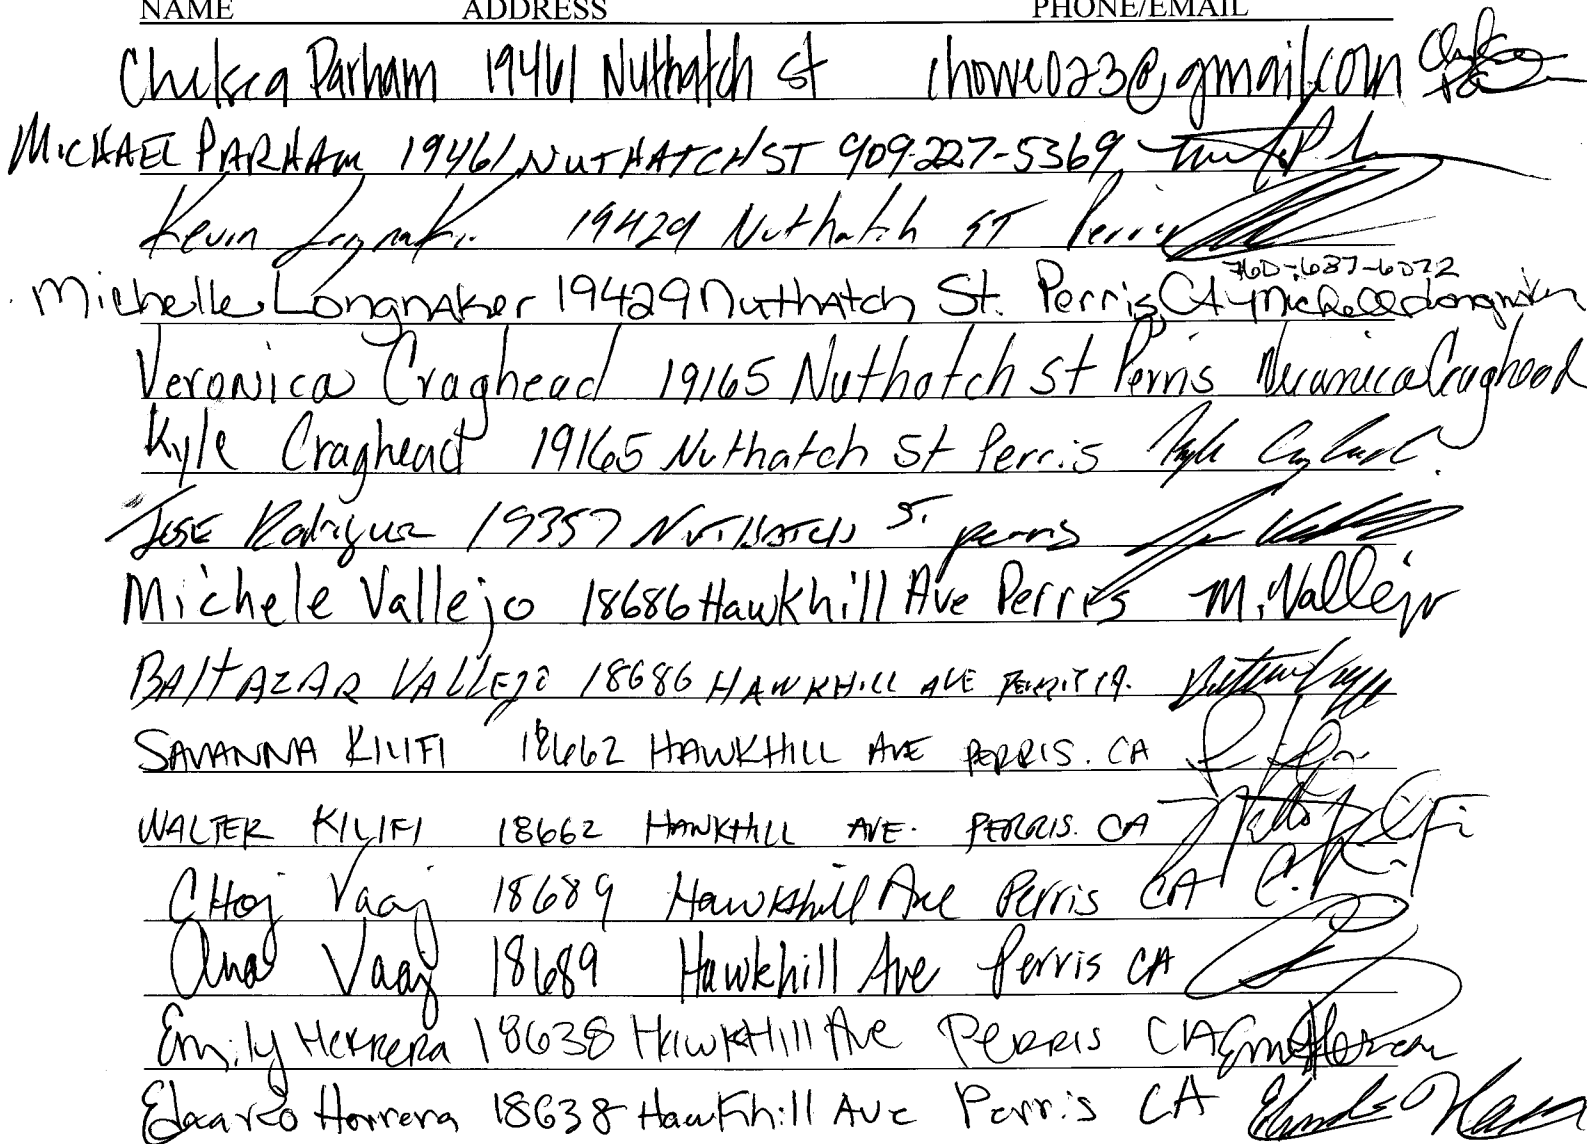 NAME ADDRESS PHONE/EMAIL
Chelsea Parham 19461 Nuthatch St chowe023@gmail.com
MICHAEL PARHAM 19461 NUTHATCH ST 909-227-5369
Kevin Longnaker 19429 Nuthatch ST Perris
760-687-6072
Michelle Longnaker 19429 Nuthatch St. Perris, CA Michelle Longnaker
Veronica Craghead 19165 Nuthatch St Perris Veronica Craghead
Kyle Craghead 19165 Nuthatch St Perris Kyle Craghead
JOSE Rodriguez 19357 NUTHATCH ST. perris
Michele Vallejo 18686 Hawkhill Ave Perris M. Vallejo
BALTAZAR VALLEJO 18686 HAWKHILL AVE CA.
SAVANNA KILIFI 18662 HAWKHILL AVE PERRIS. CA
WALTER KILIFI 18662 HAWKHILL AVE. PERRIS. CA
CHoj Vaaj 18689 Hawkhill Ave Perris CA
Ana Vaaj 18689 Hawkhill Ave Perris CA
Emily HERRERA 18638 HawkHill Ave PERRIS CA
Eduardo Herrera 18638 Hawkhill Ave Perris CA